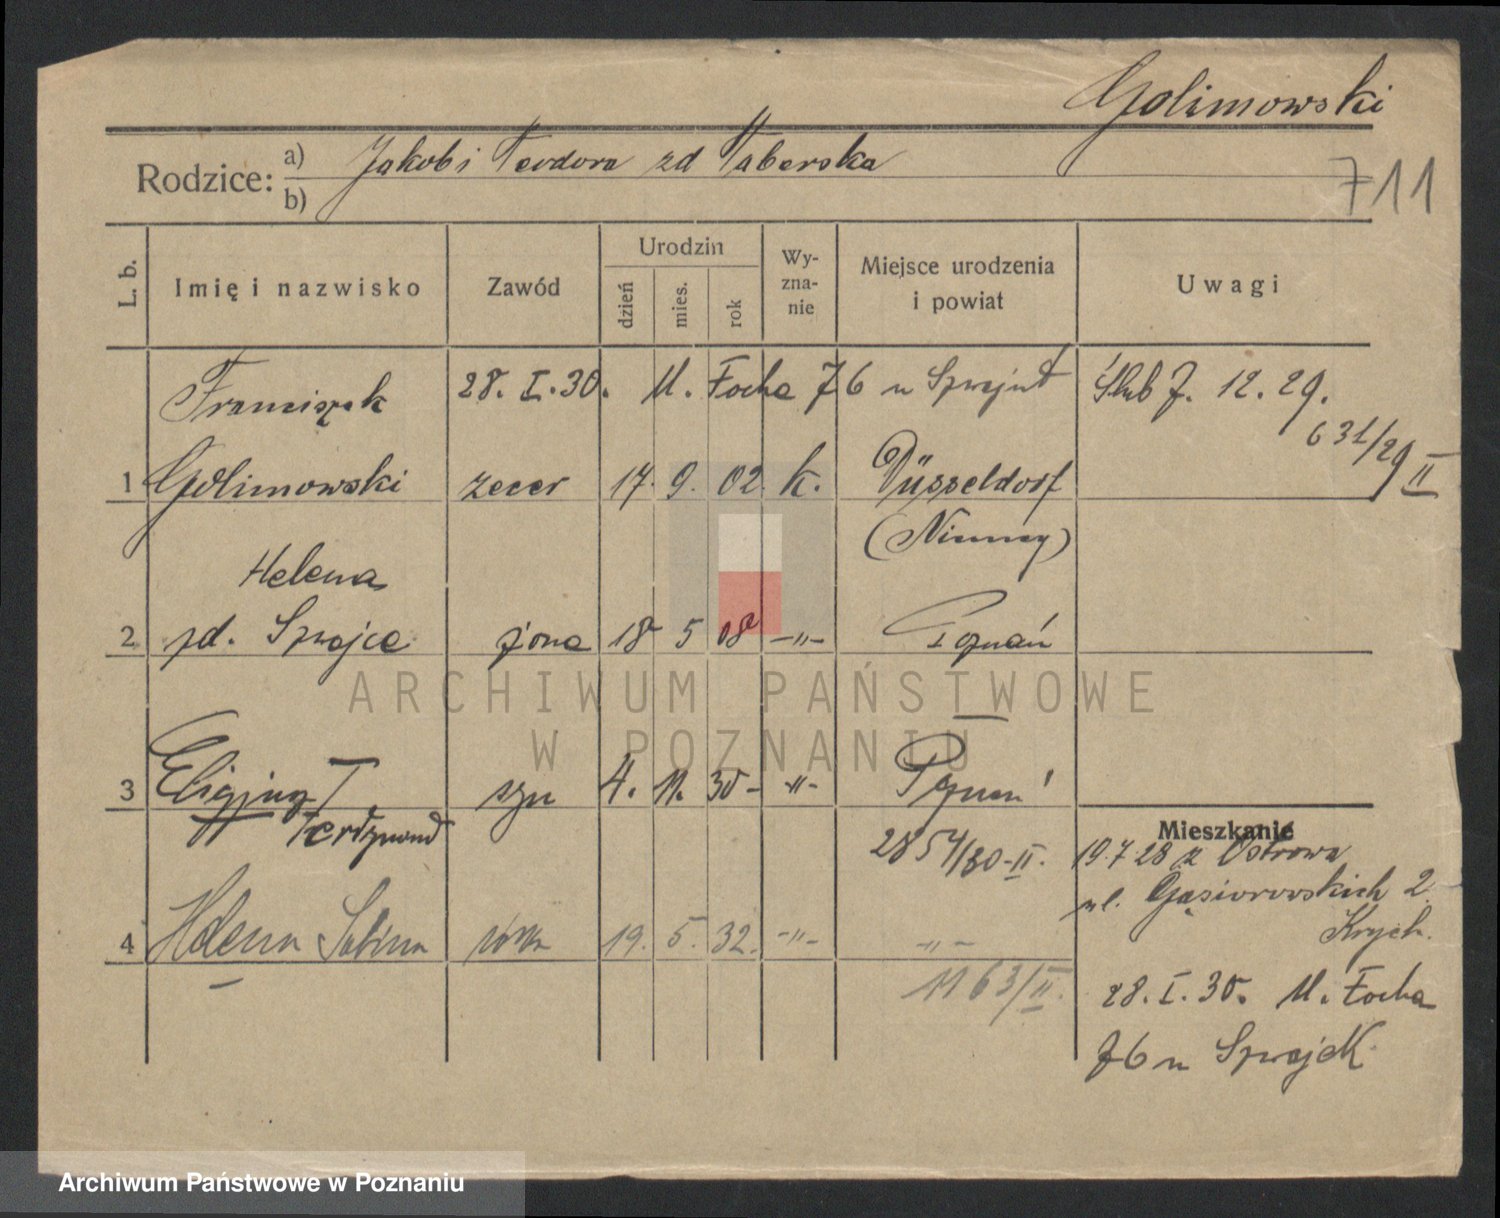 Golimowski
Rodzice: a) Jakob i Teodora zd Taberska
b)
711
L. b.
Imię i nazwisko
Zawód
Urodzin
dzień
mies.
rok
Wy-
zna-
nie
Miejsce urodzenia
i powiat
Uwagi
Franciszek 28. I. 30. M. Focha 76 u Szwajcet Ślub 7. 12. 29.
631/29 II
1 Golimowski zecer 17. 9. 02. k. Düsseldorf
(Niemcy)
Helena
2 zd. Szwajca żona 18 5 08 -"- Poznań
ARCHIWUM PAŃSTWOWE
W POZNANIU
3 Eligjusz syn 4. 11. 30- -"- Poznań
Ferdynand
2854/30-II.
Mieszkanie
19.7.28 z Ostrowa
ul. Gąsiorowskich 2
Krych.
4 Helena Sabina córka 19. 5. 32. -"- -"-
1163/II.
28. I. 30. M. Focha
76 u Szwajck
Archiwum Państwowe w Poznaniu